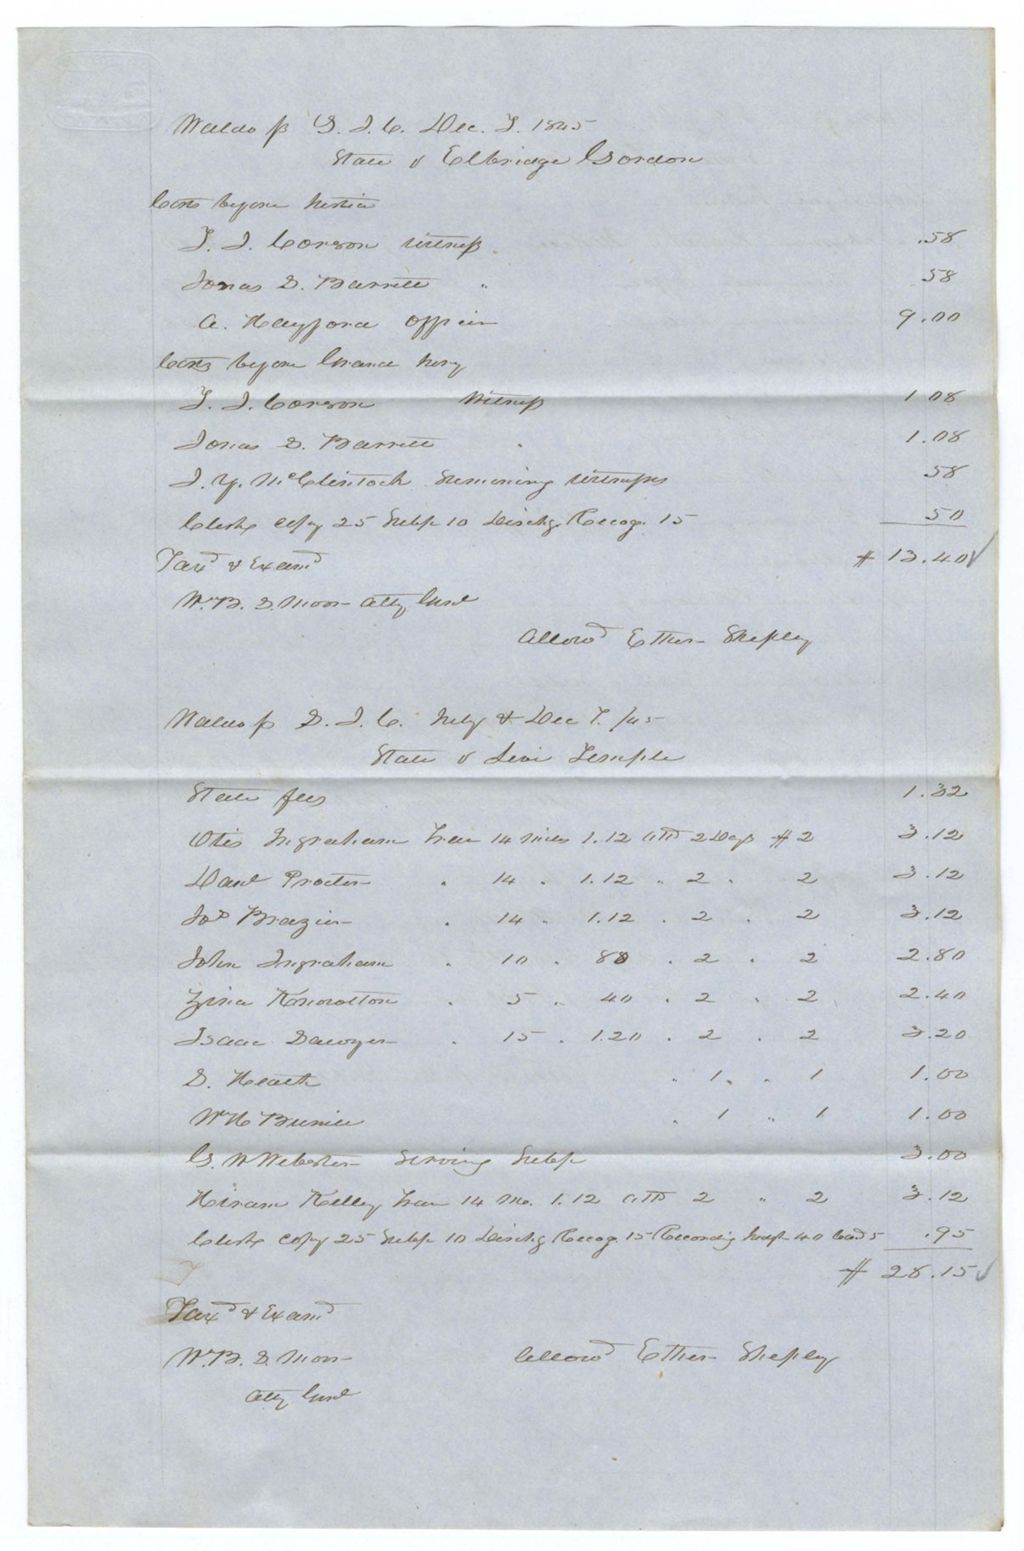 Waldo ss S. J. C. Dec. T. 1845
State v Elbridge Gordon
Costs before Justice
T. J. Corson Witness .58
Jonas S. Barrett " 58
A. Hayford Officer 9.00
Costs before Grand Jury
T. J. Corson Witness 1 08
Jonas S. Barrett " 1.08
J. Y. McClintock Sumoning Witnesses 58
Clerks copy 25 Subp 10 Dischg. Recog. 15 50
Taxd & Examd # 13.40
W. B. S. Moor Atty Genl
Allowd Ether Shepley
Waldo ss S. J. C. July & Dec T. /45
State v Levi Temple
State fees 1.32
Otis Ingraham Trav 14 miles 1.12 Attd 2 Days # 2 3.12
Danl Procter " 14 " 1.12 " 2 " 2 3.12
Jos Brazier " 14 " 1.12 " 2 " 2 3.12
John Ingraham " 10 " 80 " 2 " 2 2.80
Zina Knowlton " 5 " 40 " 2 " 2 2.40
Isaac Sawyer " 15 " 1.20 " 2 " 2 3.20
S. Heath " 1 " " 1 1.00
W H " 1 " 1 1.00
G. W Webster Serving Subp 3.00
Hiram Kelley Trav 14 Mo. 1.12 Attd 2 " 2 3.12
Clerks copy 25 Subp 10 Dischg Recog. 15 Recording 40 5 .95
# 28.15
Taxd & Examd
W. B. S. Moor Allowd Ether Shepley
Atty Genl